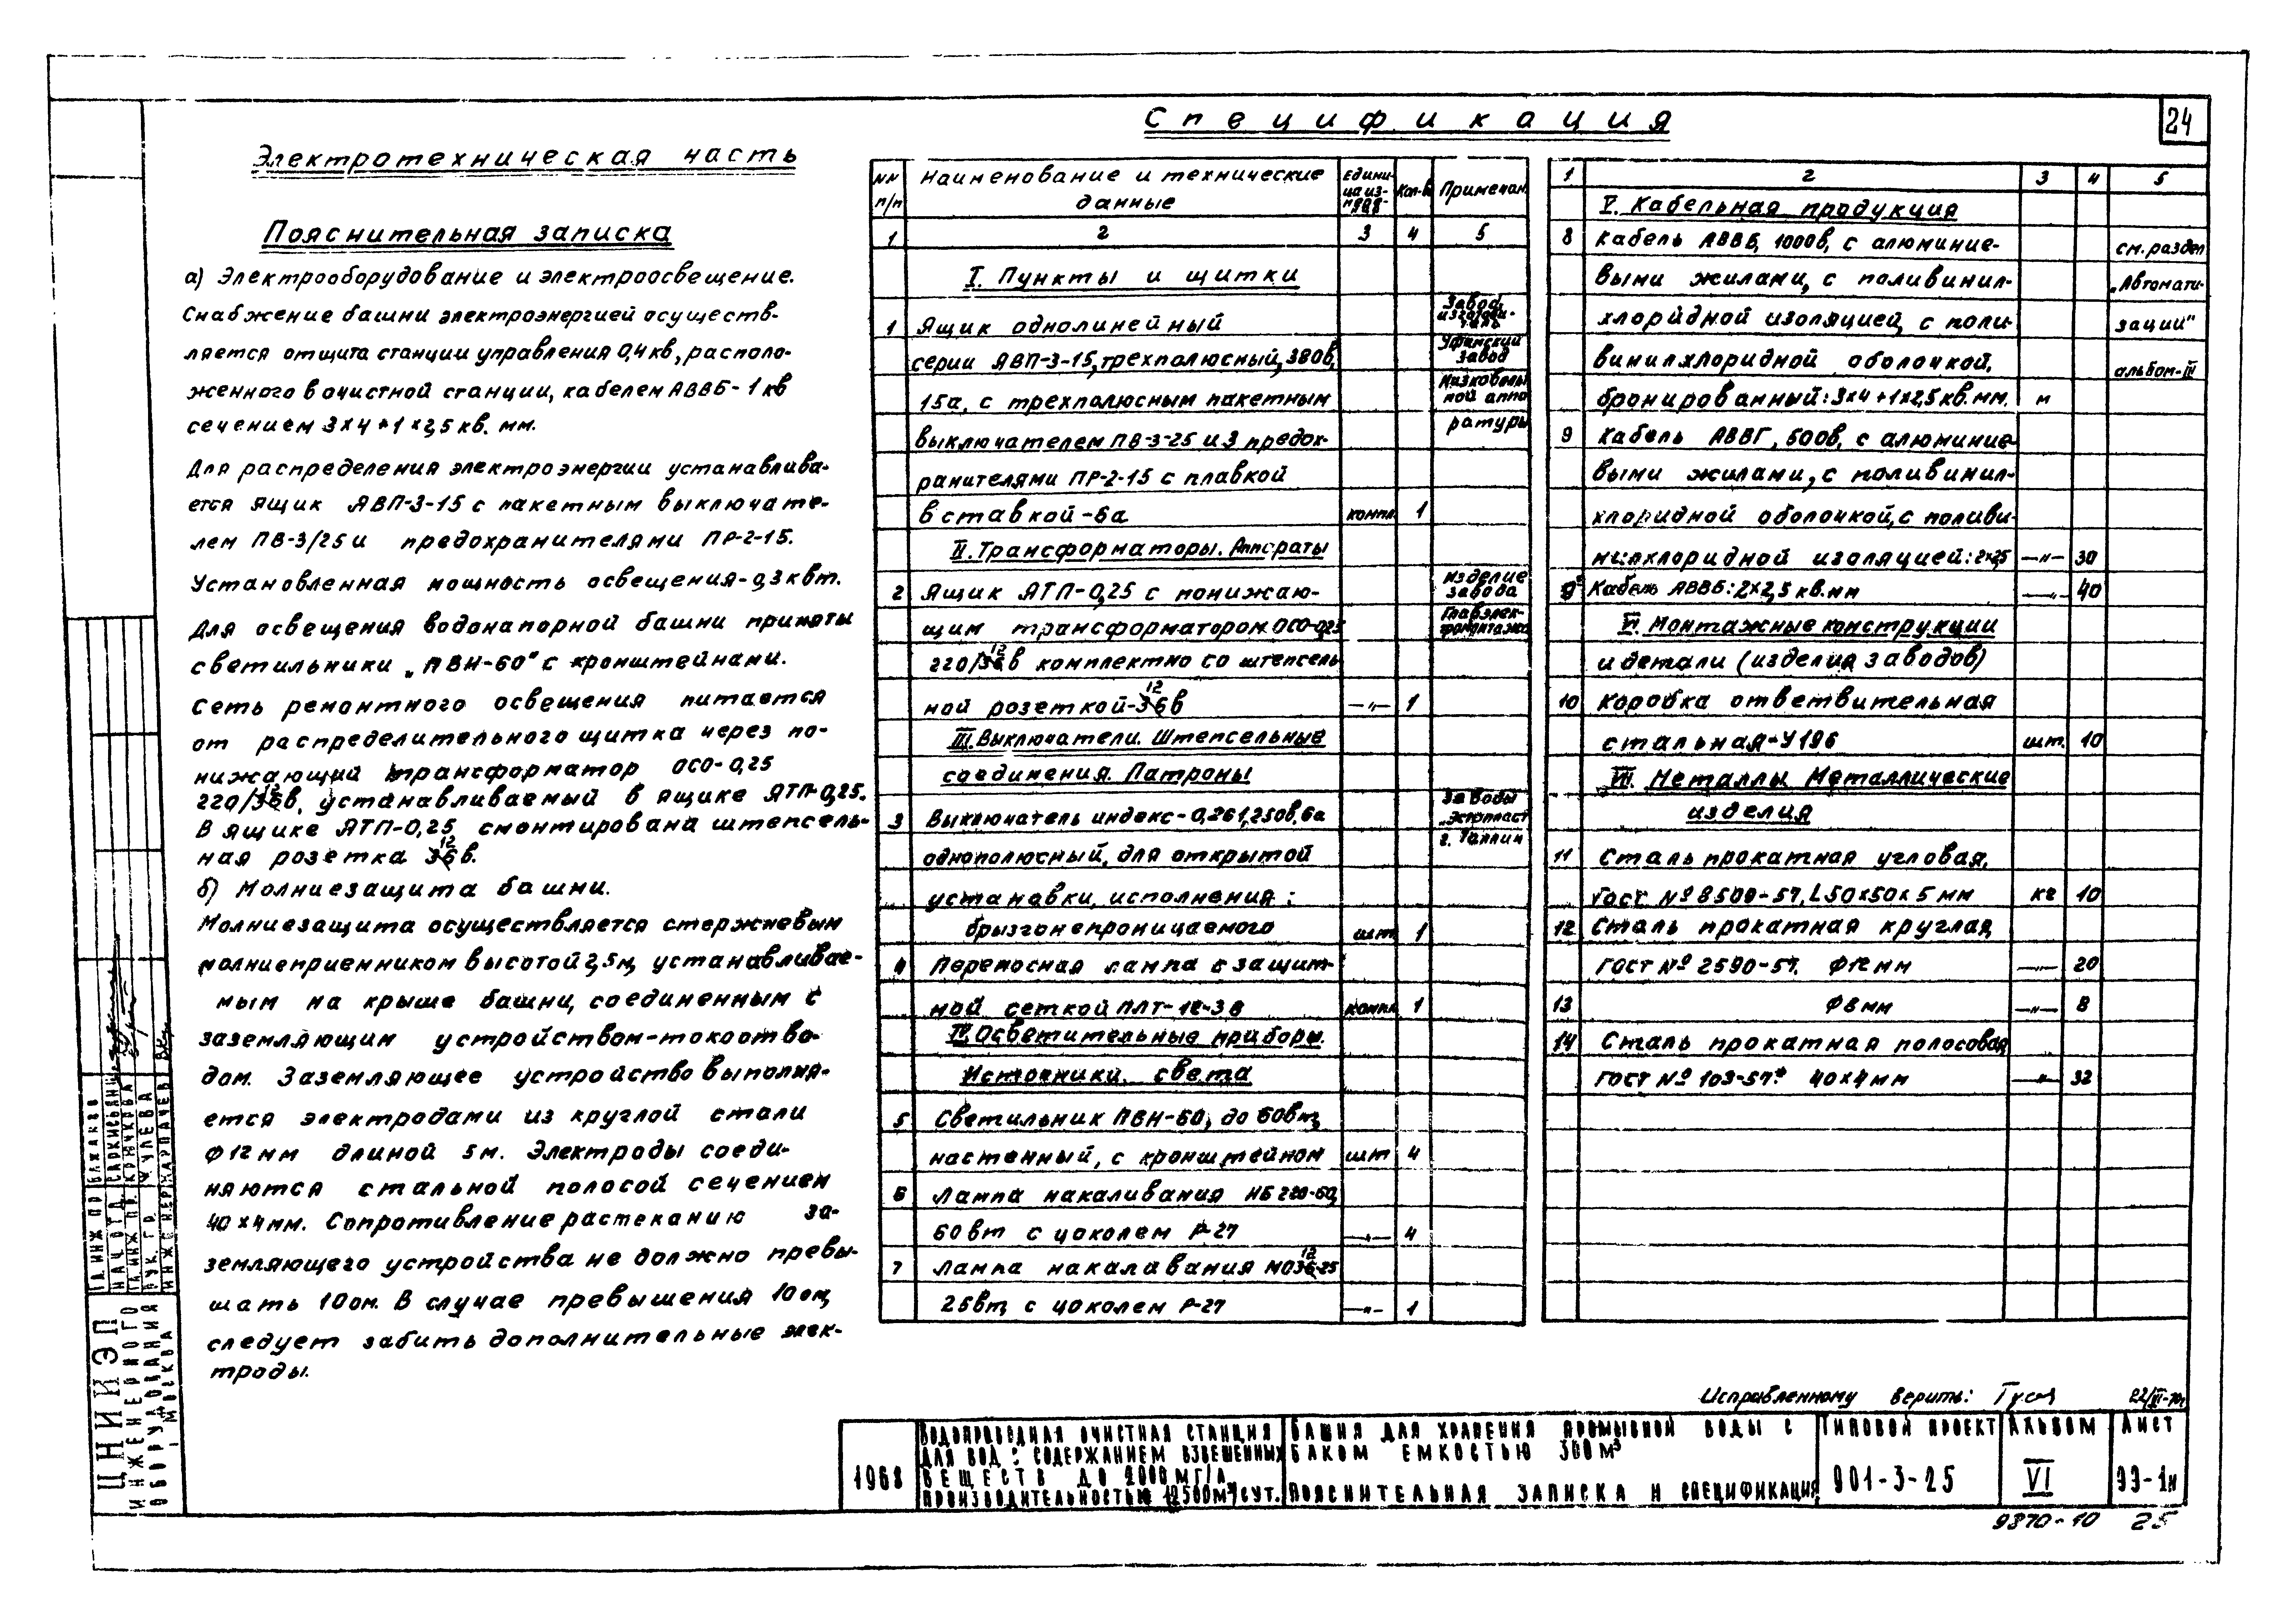 24
Спецификация
Электротехническая часть
Пояснительная записка
а) Электрооборудование и электроосвещение.
Снабжение башни электроэнергией осуществ-
ляется от щита станции управления 0,4кв, располо-
женного в очистной станции, кабелем АВВБ-1кв
сечением 3×4+1×2,5 кв. мм.
Для распределения электроэнергии устанавлива-
ется ящик ЯВП-3-15 с пакетным выключате-
лем ПВ-3/25 и предохранителями ПР-2-15.
Установленная мощность освещения-0,3 квт.
Для освещения водонапорной башни приняты
светильники „ПВН-60" с кронштейнами.
Сеть ремонтного освещения питается
от распределительного щитка через по-
нижающий трансформатор ОСО-0,25
220/12в, устанавливаемый в ящике ЯТП-0,25.
В ящике ЯТП-0,25 смонтирована штепсель-
ная розетка 12в.
б) Молниезащита башни.
Молниезащита осуществляется стержневым
молниеприемником высотой 2,5м, устанавливае-
мым на крыше башни, соединенным с
заземляющим устройством-токоотво-
дом. Заземляющее устройство выполня-
ется электродами из круглой стали
Ф12мм длиной 5м. Электроды соеди-
няются стальной полосой сечением
40×4мм. Сопротивление растеканию за-
земляющего устройства не должно превы-
шать 10ом. В случае превышения 10ом,
следует забить дополнительные элек-
троды.
NN п/п Наименование и технические данные Едини-ца из- Кол-в Примечан.
1 2 3 4 5
I. Пункты и щитки
1 Ящик однолинейный Завод изготови-тель
серии ЯВП-3-15, трехполюсный, 380в, Уфимский завод
15а, с трехполюсным пакетным низковольт-ной аппа
выключателем ПВ-3-25 и 3 предох- ратуры
ранителями ПР-2-15 с плавкой
вставкой-6а компл. 1
II. Трансформаторы. Аппараты
2 Ящик ЯТП-0,25 с понижаю- изделие завода
щим трансформатором ОСО-0,25 Главэлек-тромонтажа
220/12в комплектно со штепсель
ной розеткой-12в —"— 1
III. Выключатели. Штепсельные
соединения. Патроны
3 Выключатель индекс-0,261, 250в, 6а Заводы „Эстопласт
однополюсный, для открытой г. Таллин
установки, исполнения:
брызгонепроницаемого шт 1
4 Переносная лампа с защит-
ной сеткой ПЛТ-12-3в компл 1
IV. Осветительные приборы.
Источники света
5 Светильник ПВН-60, до 60вт,
настенный, с кронштейном шт 4
6 Лампа накаливания НБ 220-60,
60вт с цоколем Р-27 —"— 4
7 Лампа накалавания МО12-25
25вт, с цоколем Р-27 —"— 1
1 2 3 4 5
V. Кабельная продукция
8 Кабель АВВБ, 1000в, с алюминие- см. раздел
выми жилами, с поливинил- „Автомати-
хлоридной изоляцией, с поли- зации"
винилхлоридной оболочкой, альбом-III
бронированный: 3×4+1×2,5 кв.мм. м
9 Кабель АВВГ, 500в, с алюминие-
выми жилами, с поливинил-
хлоридной оболочкой, с поливи-
нилхлоридной изоляцией: 2×2,5 —"— 30
Кабель АВВБ: 2×2,5 кв.мм —"— 40
VI. Монтажные конструкции
и детали (изделия заводов)
10 Коробка ответвительная
стальная-У196 шт. 10
VII. Металлы. Металлические
изделия
11 Сталь прокатная угловая,
ГОСТ №8509-57, L50×50×5 мм кг 10
12 Сталь прокатная круглая,
ГОСТ №2590-57. Ф12 мм —"— 20
13 Ф6мм —"— 8
14 Сталь прокатная полосовая
ГОСТ №103-57* 40×4 мм —"— 32
Исправленному верить:
1968
ВОДОПРОВОДНАЯ ОЧИСТНАЯ СТАНЦИЯ
ДЛЯ ВОД С СОДЕРЖАНИЕМ ВЗВЕШЕННЫХ
ВЕЩЕСТВ ДО МГ/Л
ПРОИЗВОДИТЕЛЬНОСТЬЮ 12500М³/СУТ.
БАШНЯ ДЛЯ ХРАНЕНИЯ ПРОМЫВНОЙ ВОДЫ С
БАКОМ ЕМКОСТЬЮ 300 М³
ПОЯСНИТЕЛЬНАЯ ЗАПИСКА И СПЕЦИФИКАЦИЯ
ТИПОВОЙ ПРОЕКТ
901-3-25
АЛЬБОМ
VI
ЛИСТ
ЭЭ-1н
9870-10 25
ЦНИИЭП
ИНЖЕНЕРНОГО
ОБОРУДОВАНИЯ
г МОСКВА
НАЧ ОТД
РУК. ГР. ЖУЛЕВА